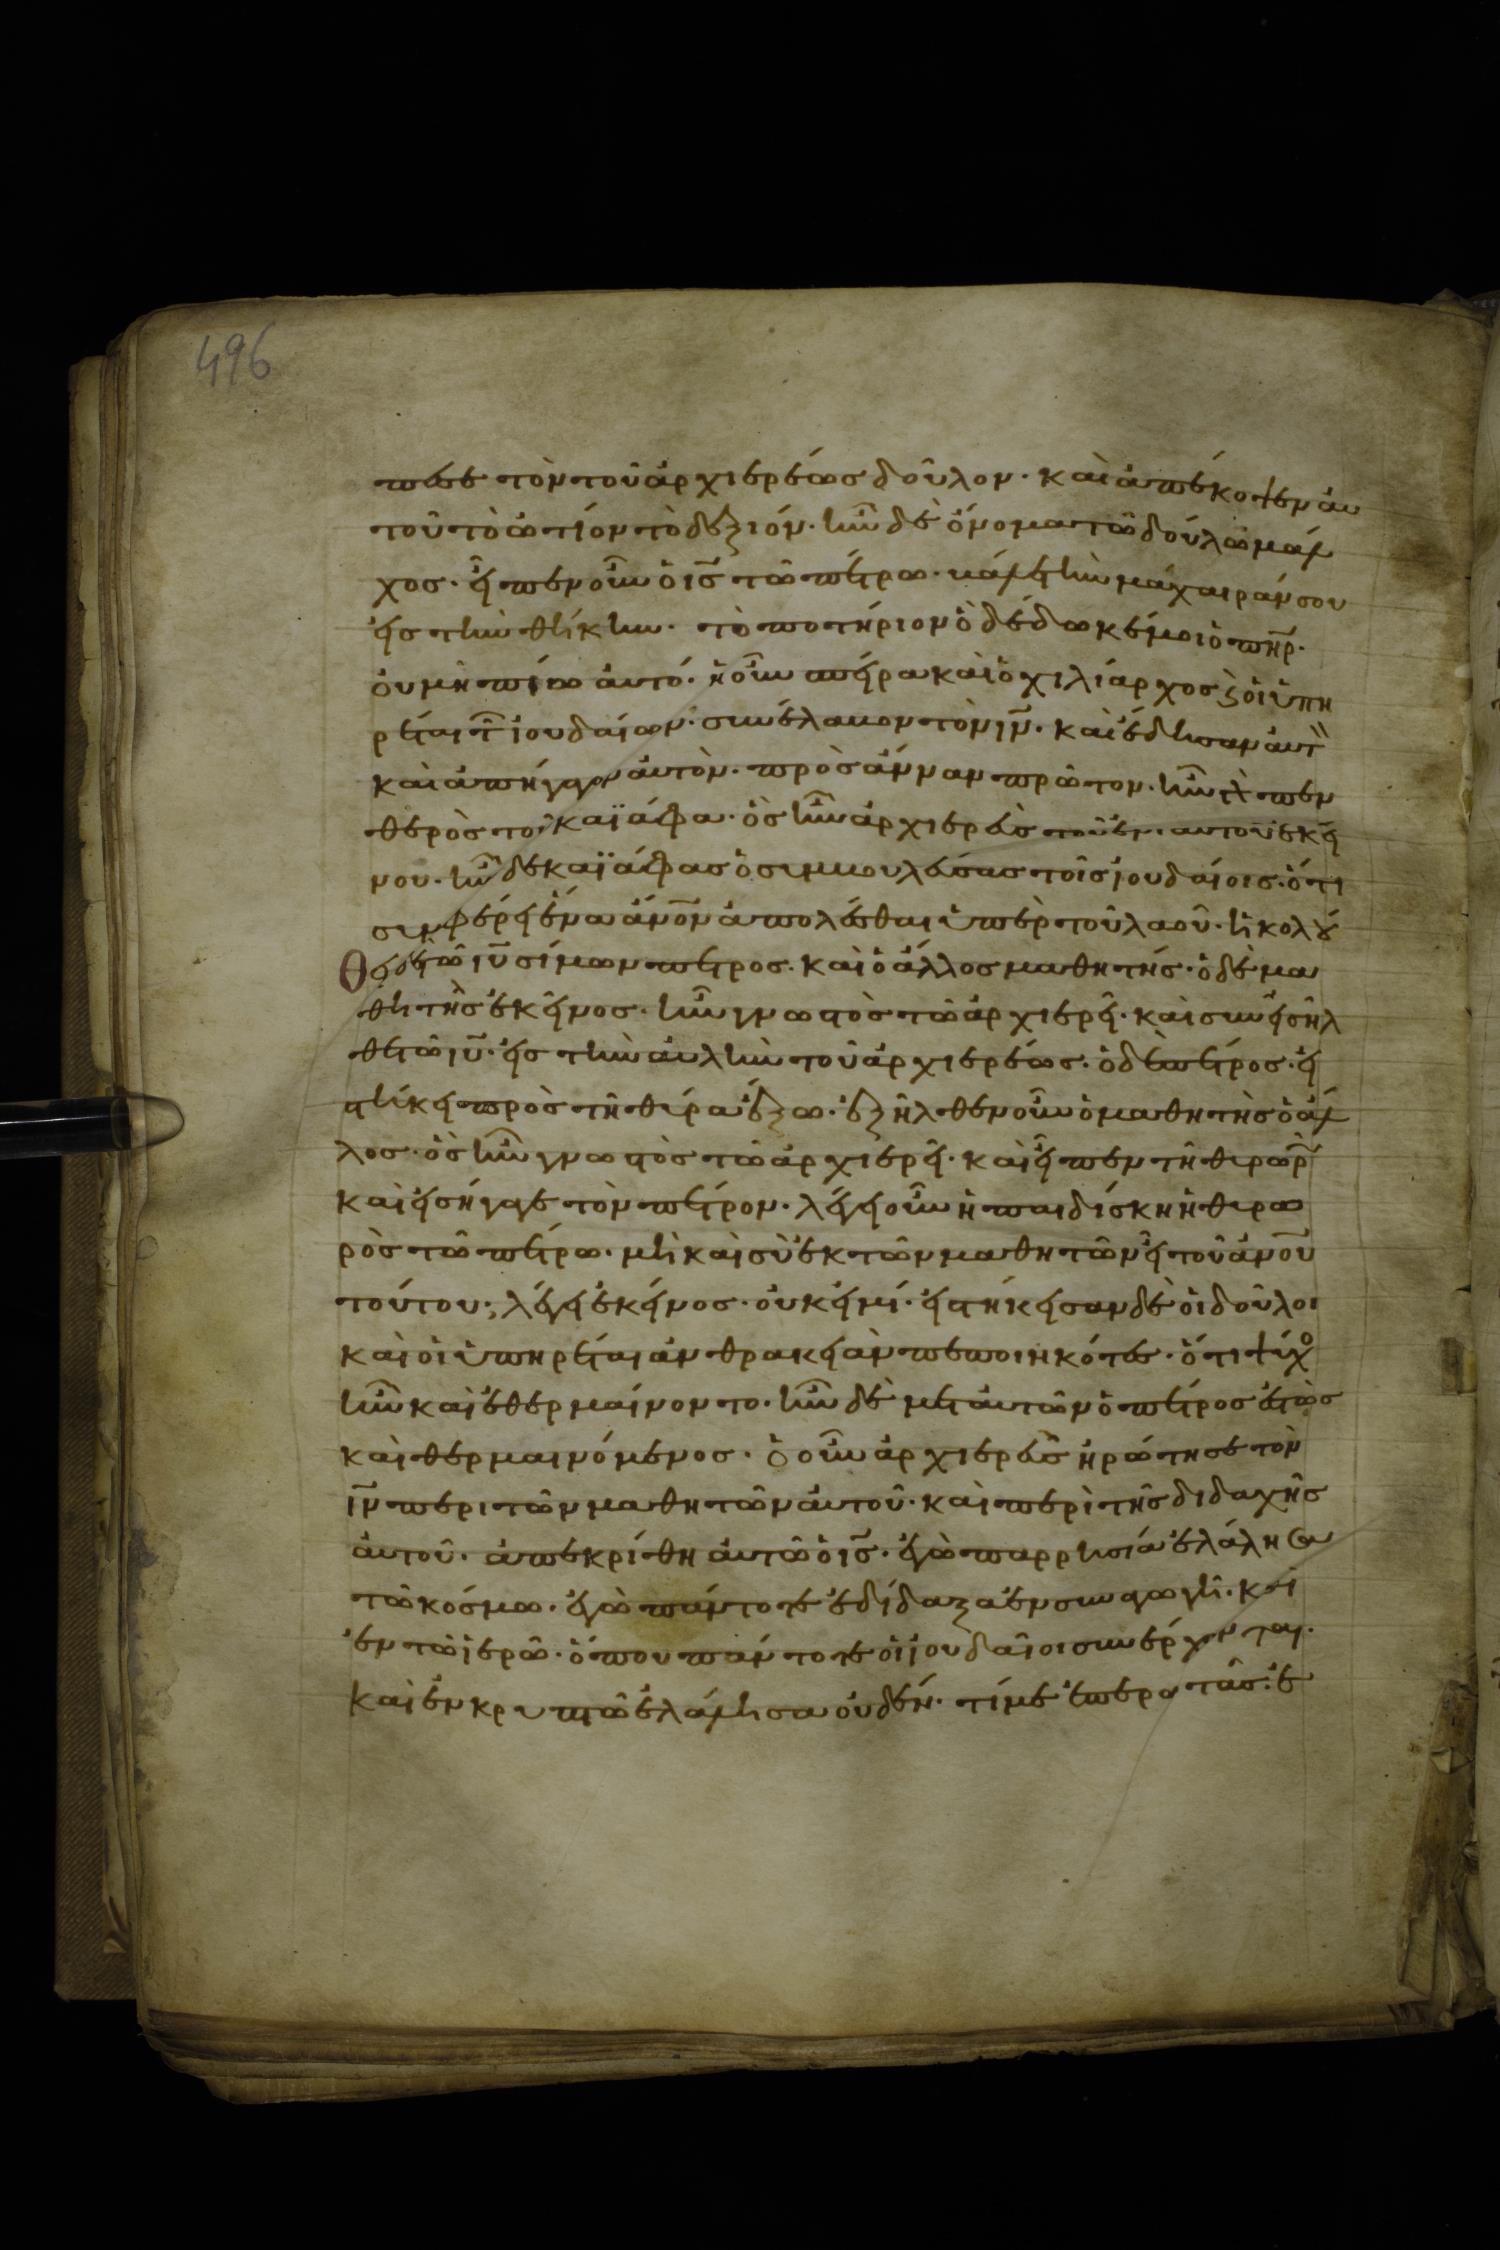 496
παισε τὸν τοῦ ἀρχιερέως δοῦλον· καὶ ἀπέκοψεν ἀυ
τοῦ τὸ ὠτίον τὸ δεξιόν· ἦν δὲ ὄνομα τῶ δούλω μάλ
χος· εἶπεν οὖν ὁ ις τῶ πέτρω· βάλε τὴν μάχαιράν σου
εἰς τὴν θήκην· τὸ ποτήριον ὃ δέδωκέ μοι ὁ πηρ·
ὀυ μὴ πίω ἀυτό· ἡ οὖν σπεῖρα καὶ ὁ χιλίαρχος ϗ ὁι ὑπη
ρέται τῶν ἰουδαίων· συνέλαβον τὸν ιν· καὶ ἔδησαν ἀυτὸ
καὶ ἀπήγαγον ἀυτὸν· πρὸς ἄνναν πρῶτον· ἦν γὰρ πεν
θερὸς τοῦ καϊάφα· ὃς ἦν ἀρχιερεὺς τοῦ ἐνιαυτοῦ ἐκεί
νου· ἦν δὲ καϊάφας ὁ συμβουλεύσας τοῖς ἰουδαίοις· ὅτι
συμφέρει ἕνα ἄνον ἀπολέσθαι ὑπὲρ τοῦ λαοῦ· ἠκολού
θει δὲ τῶ ιυ σίμων πέτρος· καὶ ὁ ἄλλος μαθητής· ὁ δὲ μα
θητὴς ἐκεῖνος· ἦν γνωστὸς τῶ ἀρχιερεῖ· καὶ συνεισῆλ
θε τῶ ιυ· εἰς τὴν ἀυλὴν τοῦ ἀρχιερέως· ὁ δὲ πέτρος· εἱ
στήκει πρὸς τῆ θύρα ἔξω· ἐξῆλθεν οὖν ὁ μαθητὴς ὁ ἄλ
λος· ὃς ἦν γνωστὸς τῶ ἀρχιερεῖ· καὶ εἶπεν τῆ θυρωρῶ
καὶ εἰσήγαγε τὸν πέτρον· λέγει οὖν ἡ παιδίσκη ἡ θυρω
ρὸς τῶ πέτρω· μὴ καὶ σὺ ἐκ τῶν μαθητῶν εἶ τοῦ ἀνου
τούτου; λέγει ἐκεῖνος· ὀυκ εἰμί· εἱστήκεισαν δὲ ὁι δοῦλοι
καὶ ὁι ὑπηρέται ἀνθρακειὰν πεποιηκότες· ὅτι ψύχο
ἦν καὶ ἐθερμαίνοντο· ἦν δὲ μετ ἀυτῶν ὁ πέτρος ἑστὼς
καὶ θερμαινόμενος· ὁ οὖν ἀρχιερεὺς ἠρώτησε τὸν
ιν περι τῶν μαθητῶν ἀυτοῦ· καὶ περὶ τῆς διδαχῆς
ἀυτοῦ· ἀπεκρίθη ἀυτῶ ὁ ις· ἐγὼ παρρησία ἐλάλησα
τῶ κόσμω· ἐγὼ πάντοτε ἐδίδαξα ἐν συναγωγῆ· καὶ
ἐν τῶ ἱερῶ· ὅπου πάντοτε ὁι ἰουδαῖοι συνέρχονται·
καὶ ἐν κρυπτῶ ἐλάλησα ὀυδέν· τί με ἐπερωτᾶς· ἐ